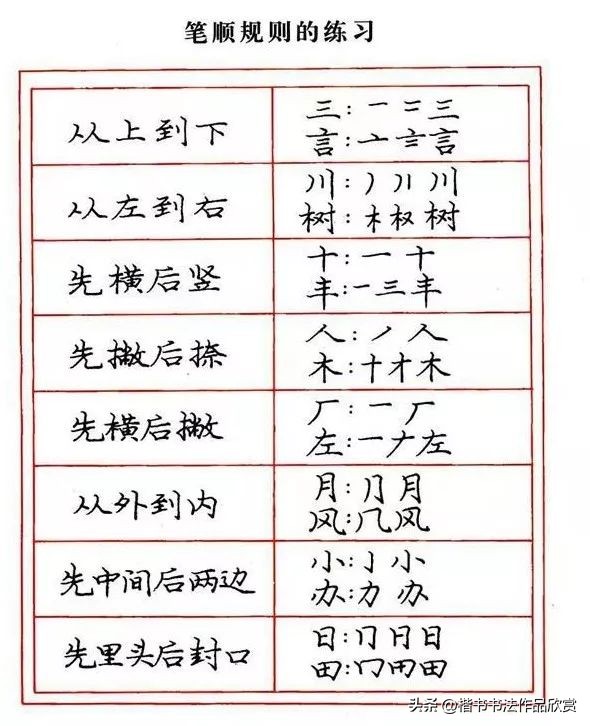 笔顺规则的练习
从上到下
三：一 二 三
言：亠 言
从左到右
川：丿 川
树：木 权 树
先横后竖
十：一 十
丰：一 三 丰
先撇后捺
人：丿 人
木：十 才 木
先横后撇
厂：一 厂
左：一 𠂇 左
从外到内
月：⺆ 月
风：几 风
先中间后两边
小：亅 小
办：力 办
先里头后封口
日：冂 日
田：冂 田
头条 @楷书书法作品欣赏